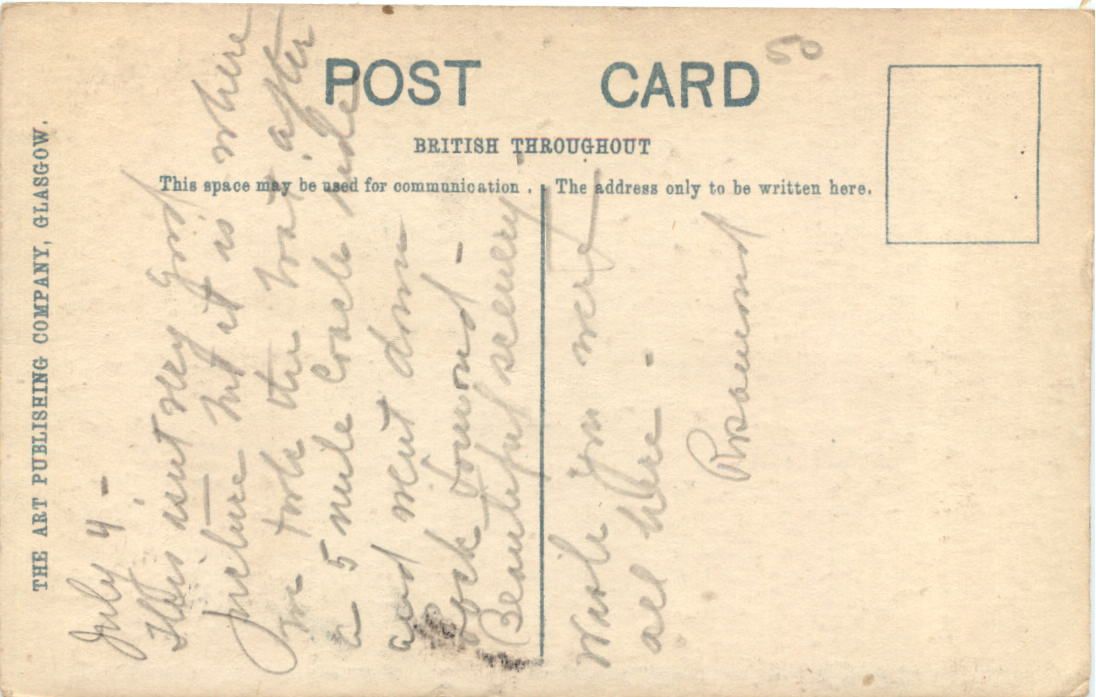 POST CARD
50
BRITISH THROUGHOUT
This space may be used for communication.
The address only to be written here.
THE ART PUBLISHING COMPANY, GLASGOW.
July 4 -
This isnt very good
picture - but it is where
we took the boat after
a 5 mile coach ride
and went down
Lock Lomond -
Beautiful scenery -
Wish you were
all here -
Rosamond